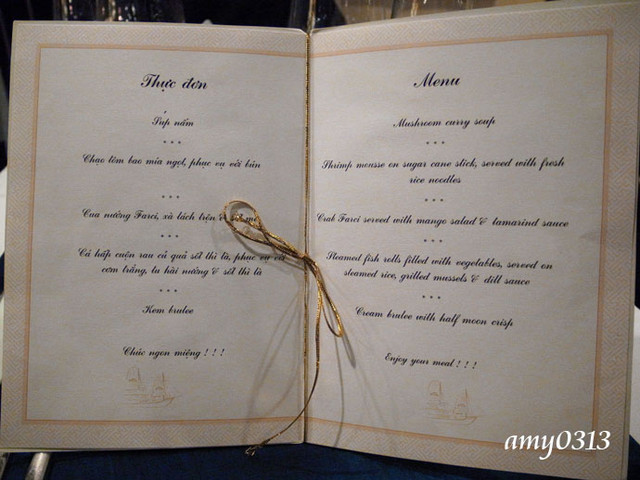 Thực đơn
Súp nấm
* * *
Chạo tôm bao mía ngọt, phục vụ với bún
* * *
Cua nướng Farci, xà lách trộn & sốt me
* * *
Cá hấp cuộn rau củ quả sốt thì là, phục vụ với
cơm trắng, tu hài nướng & sốt thì là
* * *
Kem brulee
Chúc ngon miệng ! ! !
Menu
Mushroom curry soup
* * *
Shrimp mousse on sugar cane stick, served with fresh
rice noodles
* * *
Crab Farci served with mango salad & tamarind sauce
* * *
Steamed fish rolls filled with vegetables, served on
steamed rice, grilled mussels & dill sauce
* * *
Cream brulee with half moon crisp
Enjoy your meal ! ! !
amy0313